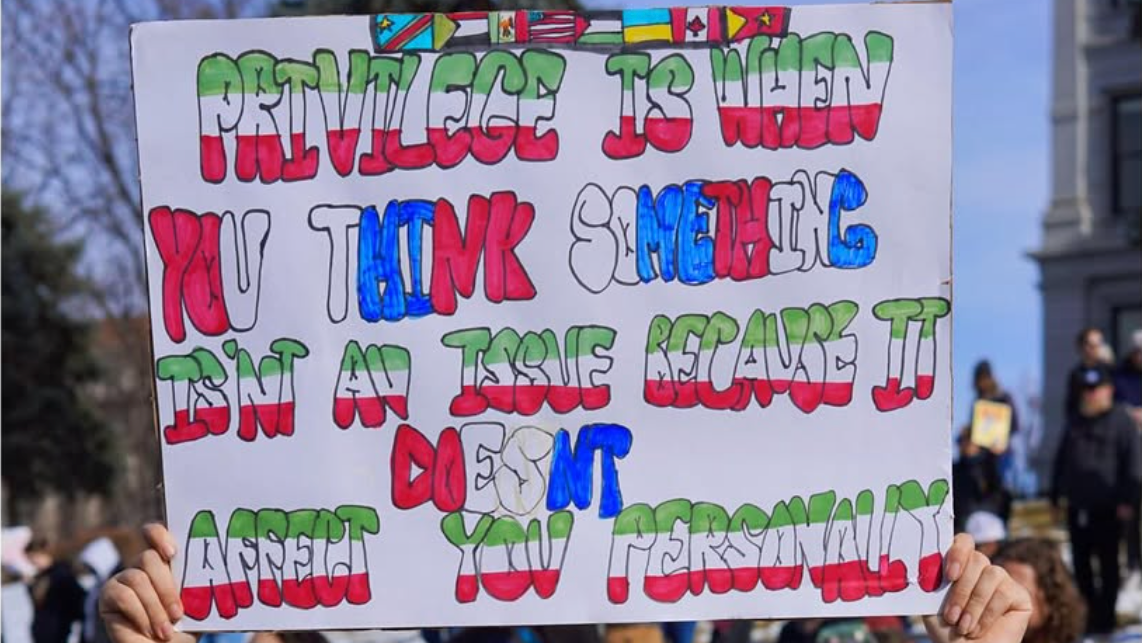 PRIVILEGE IS WHEN
YOU THINK SOMETHING
ISN'T AN ISSUE BECAUSE IT
DOESNT
AFFECT YOU PERSONALLY